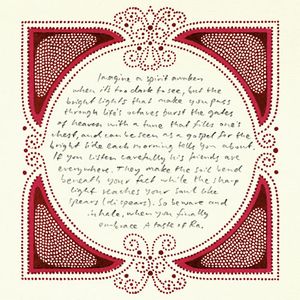 Imagine a spirit awaken
when it's too dark to see, but the
bright lights that make you pass
through life's octaves burst the gates
of heaven with a tune that fills one's
chest, and can be seen as a gospel for the
bright side each morning tells you about.
If you listen carefully his friends are
everywhere. They make the soil bend
beneath your feet while the sharp
light reaches your soul like
spears (Her
So beware and
inhale, when you finally
embrace A taste of Ra.